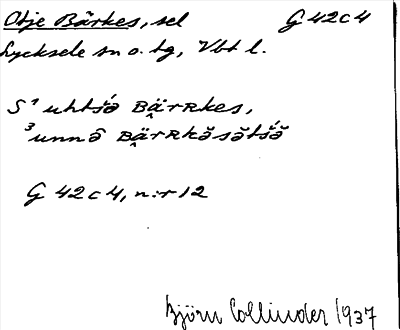 Otje Bärkes, sel G 42 c 4
Lycksele sn o. tg, Vbt l.
S¹ uhtšə́ BÄRRkes,
³unnə̂ BÄRRkə̆sə̆tšə̆́
G 42 c 4, n:r 12
Björn Collinder 1937